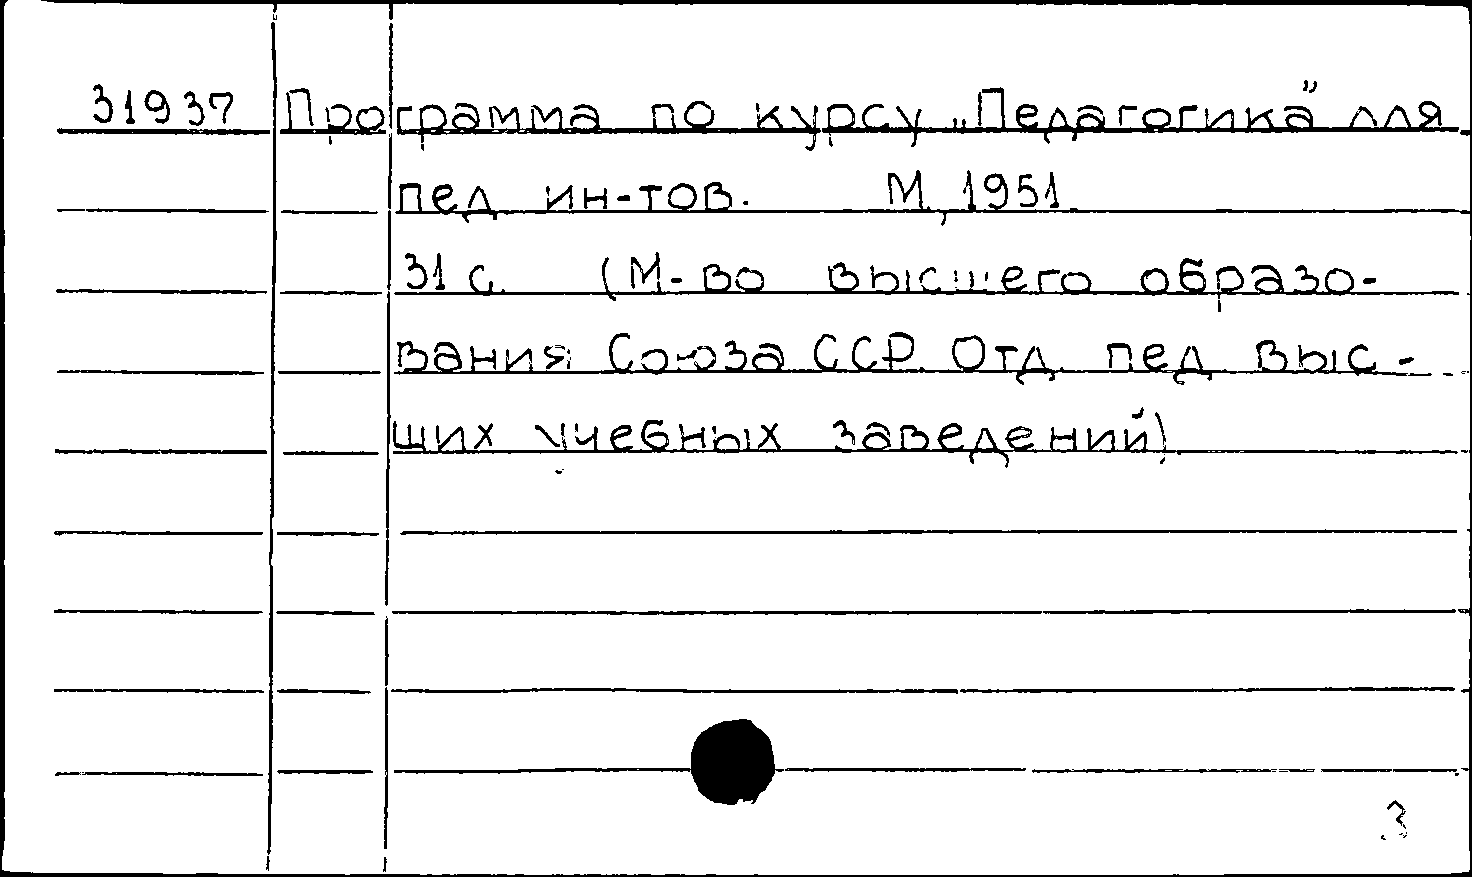 31937 Программа по курсу „Педагогика” для
пед ин-тов. М, 1951
31 с. (М-во высшего образо-
вания Союза ССР. Отд. пед выс-
ших учебных заведений)
3